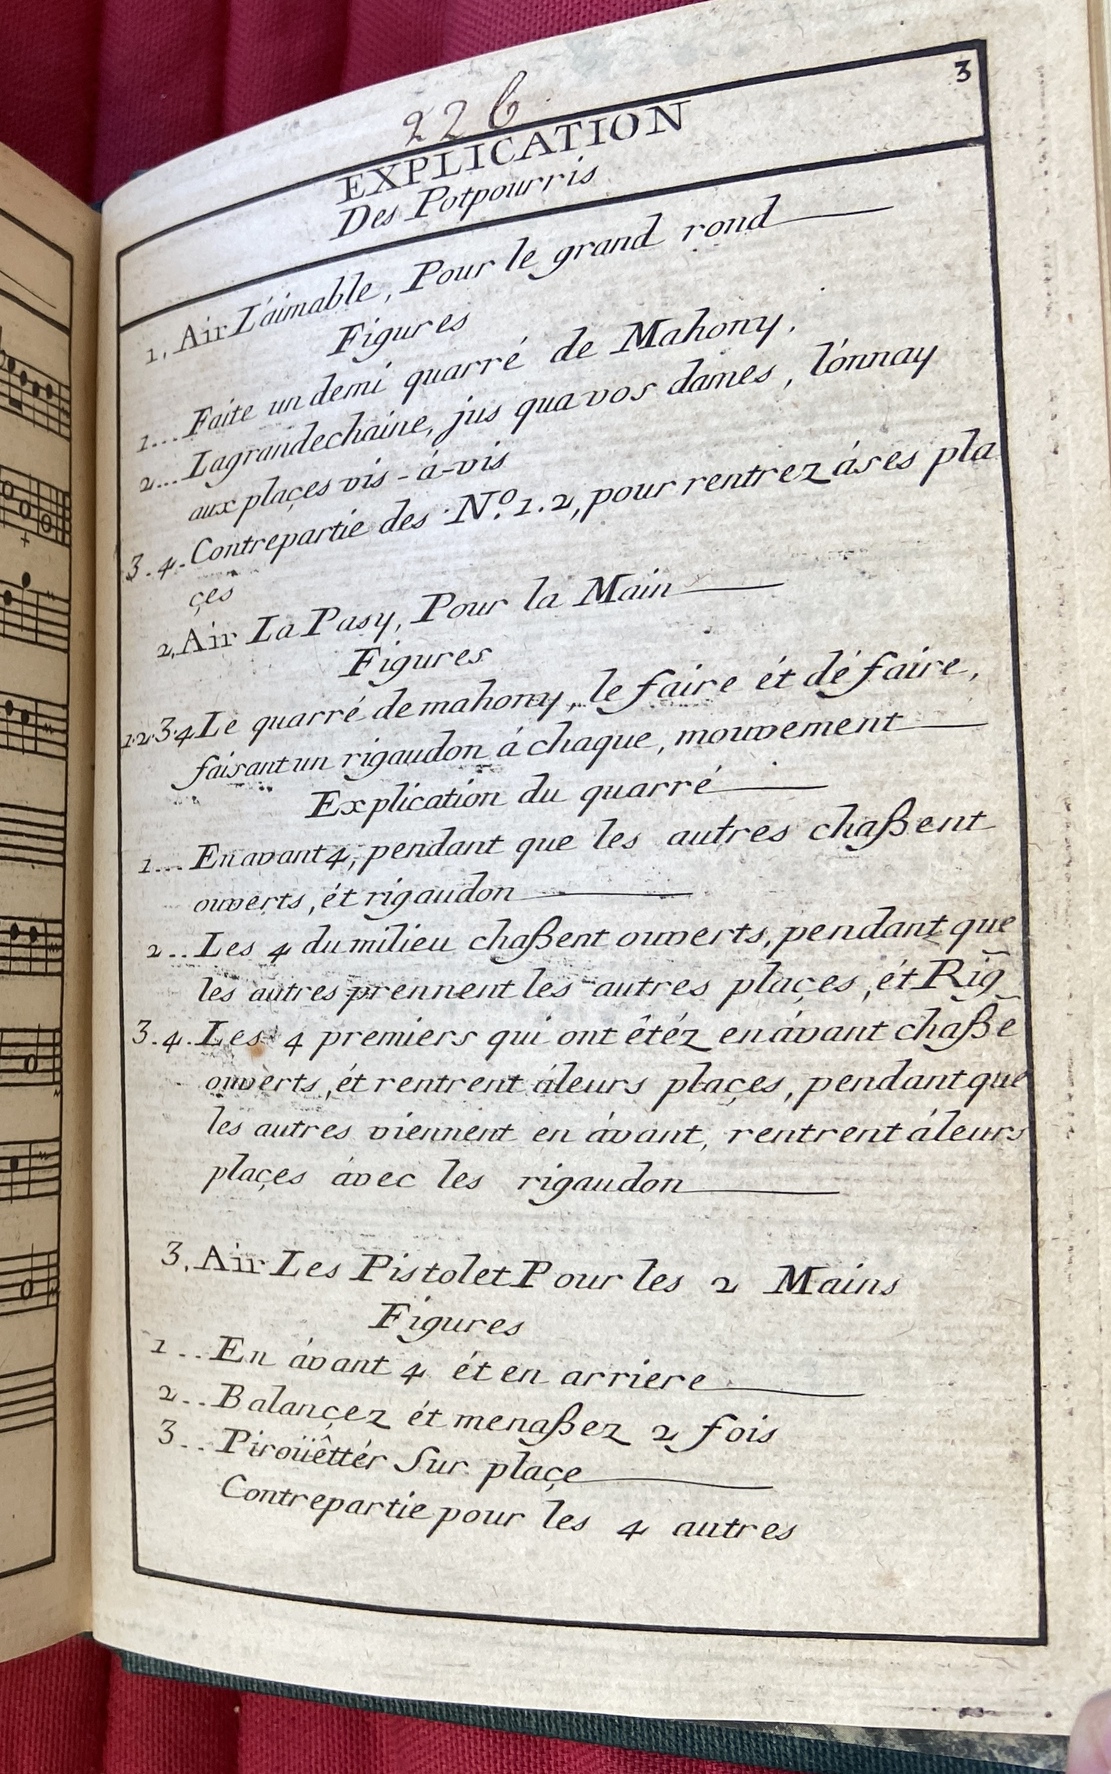 3
226
EXPLICATION
Des Potpourris
1. Air L'aimable, Pour le grand rond
Figures
1... Faite un demi quarré de Mahony.
2... Lagrandechaine, jus qua vos dames, l'onnay
aux plaçes vis-á-vis
3.4. Contrepartie des N.º 1.2, pour rentrez áses pla
çes
2, Air La Pasy, Pour la Main
Figures
1.2.3.4 Le quarré demahony, le faire ét défaire,
faisant un rigaudon á chaque, mouvement
Explication du quarré
1... Enavant 4, pendant que les autres chaßent
ouverts, ét rigaudon
2.. Les 4 dumilieu chaßent ouverts, pendant que
les autres prennent les autres plaçes, ét Rig
3.4. Les 4 premiers qui ont êtéz enávant chaße
ouverts, ét rentrent áleurs plaçes, pendant que
les autres viennent en ávant, rentrent áleurs
plaçes ávec les rigaudon
3, Air Les Pistolet Pour les 2 Mains
Figures
1.. En ávant 4 ét en arriere
2.. Balançez ét menaßez 2 fois
3.. Piroüêttér Sur plaçe
Contrepartie pour les 4 autres